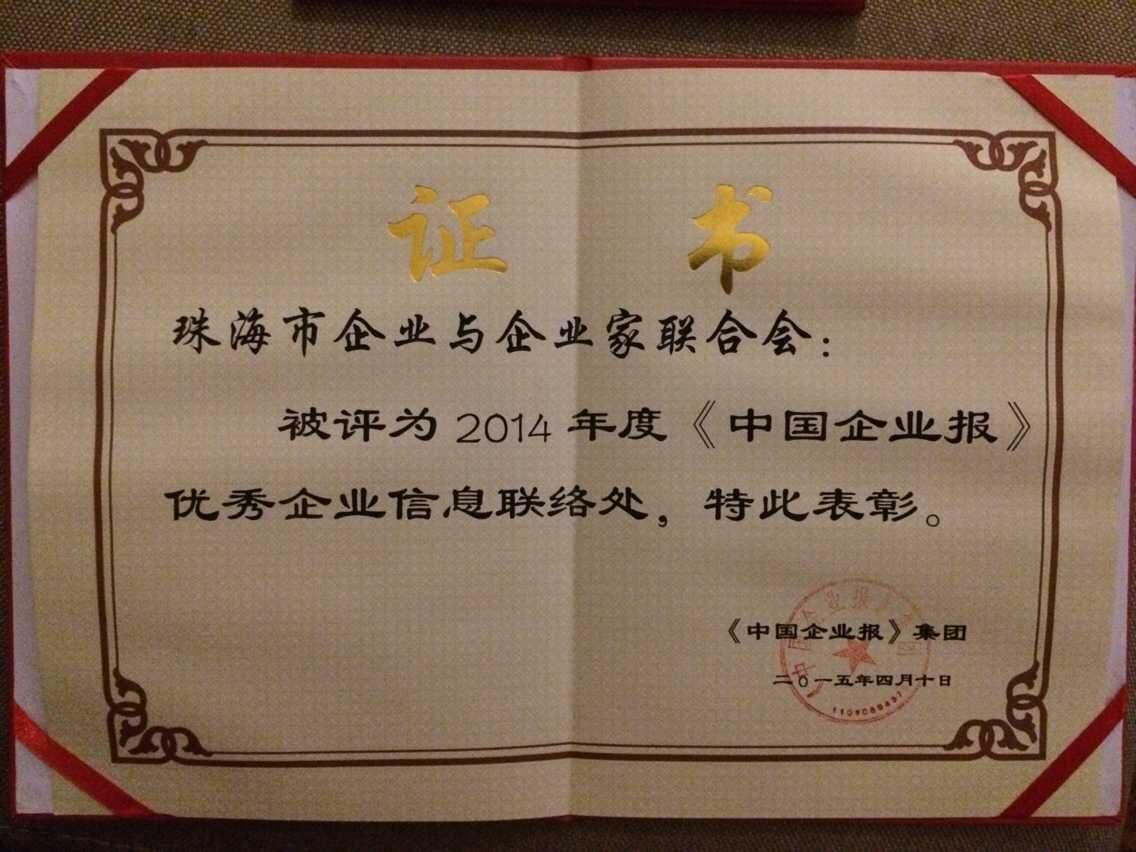 证书
珠海市企业与企业家联合会：
被评为 2014 年度《中国企业报》
优秀企业信息联络处，特此表彰。
《中国企业报》集团
二〇一五年四月十日